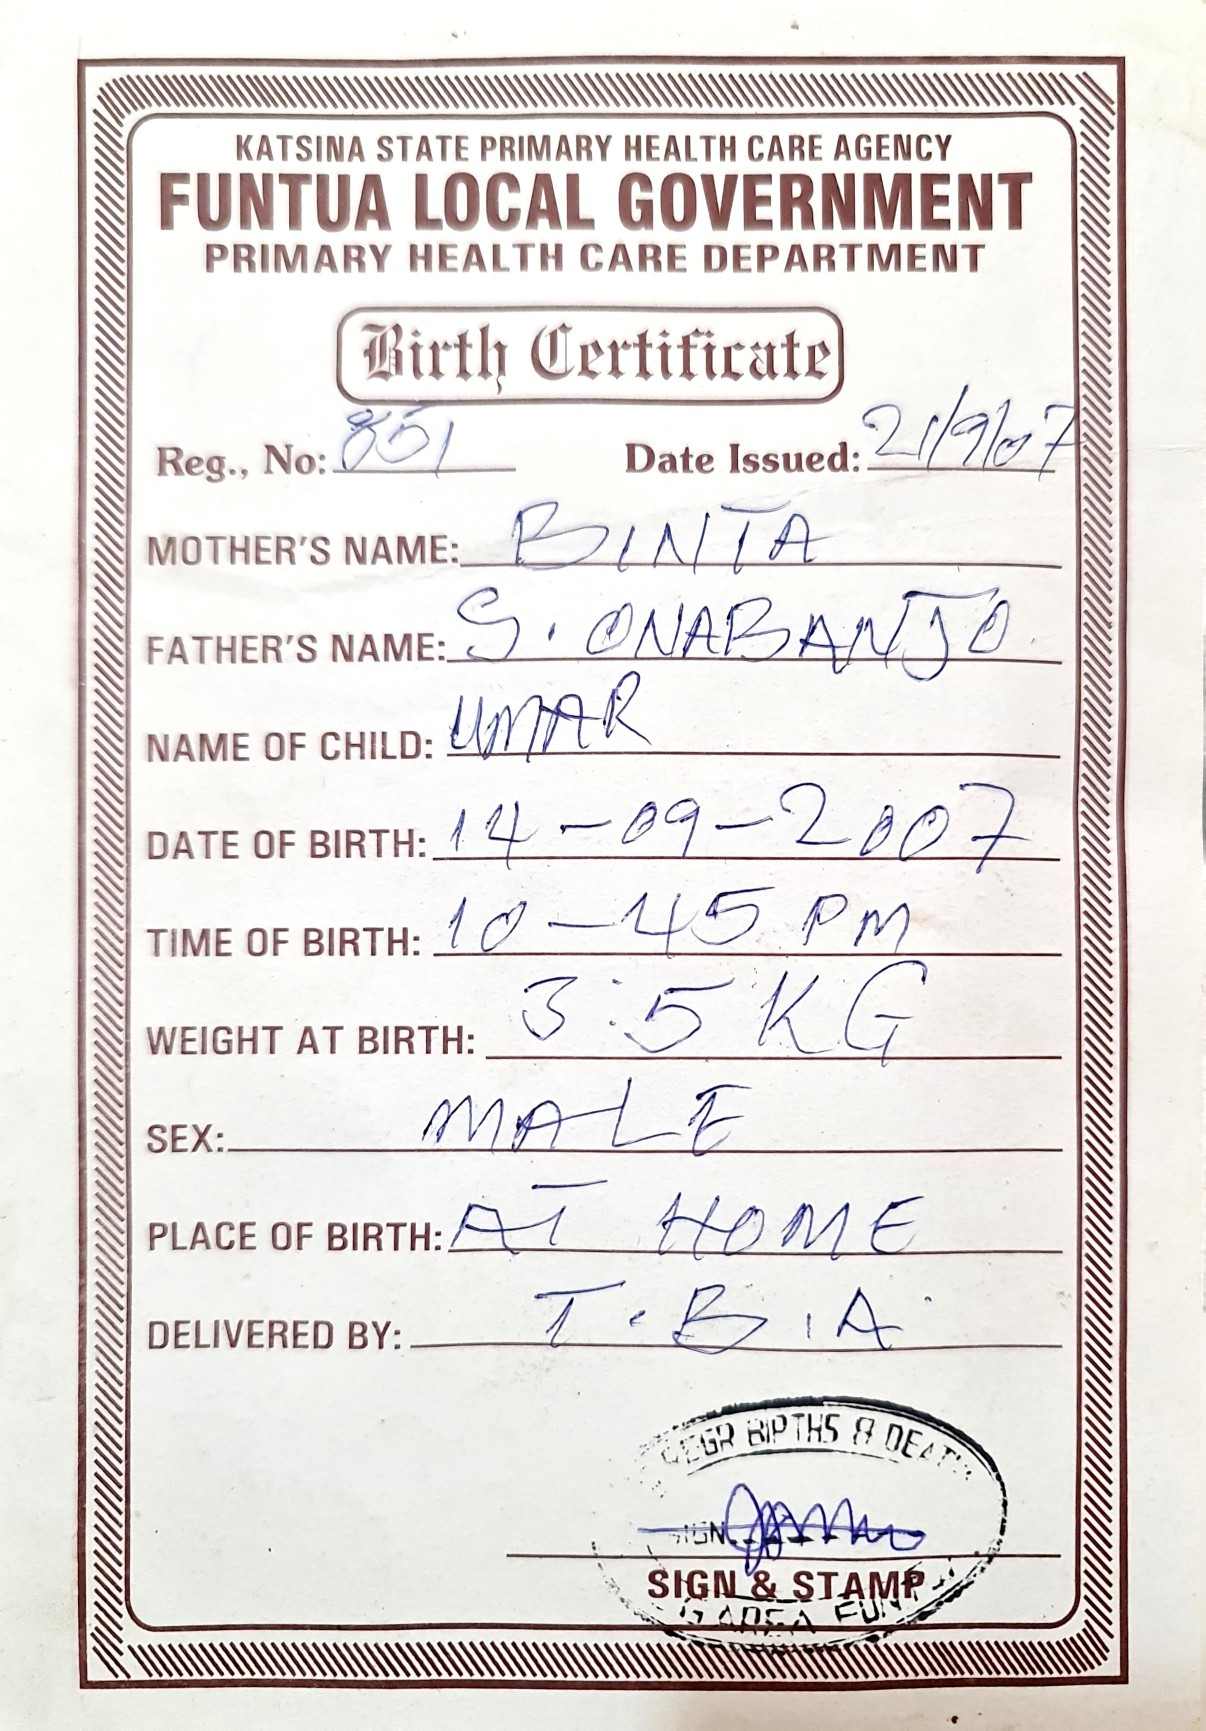 KATSINA STATE PRIMARY HEALTH CARE AGENCY
FUNTUA LOCAL GOVERNMENT
PRIMARY HEALTH CARE DEPARTMENT
Birth Certificate
Reg., No: 851 Date Issued: 21/9/07
MOTHER'S NAME: BINTA
FATHER'S NAME: S. ONABANJO
NAME OF CHILD: UMAR
DATE OF BIRTH: 14-09-2007
TIME OF BIRTH: 10-45 PM
WEIGHT AT BIRTH: 3.5 KG
SEX: MALE
PLACE OF BIRTH: AT HOME
DELIVERED BY: T.B.A.
BIRTHS & DEATH
SIGN
SIGN & STAMP
AREA